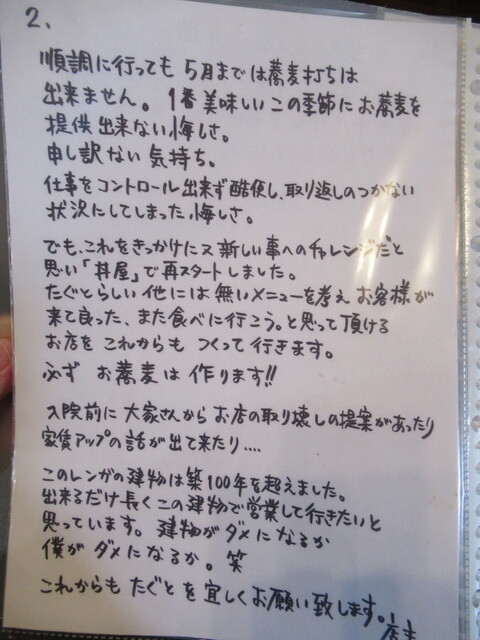 2、
順調に行っても 5月までは蕎麦打ちは
出来ません。 1番美味しいこの季節にお蕎麦を
提供出来ない悔しさ。
申し訳ない気持ち。
仕事をコントロール出来ず酷使し、取り返しのつかない
状況にしてしまった悔しさ。
でも、これをきっかけに又新しい事へのチャレンジだと
思い「丼屋」で再スタートしました。
たぐとらしい他には無いメニューを考え お客様が
来て良った、また食べに行こう。と思って頂ける
お店を これからも つくって行きます。
必ず お蕎麦は 作ります!!
入院前に 大家さんから お店の取り壊しの提案があったり
家賃アップの話が出て来たり....
このレンガの建物は築100年を超えました。
出来るだけ長くこの建物で営業して行きたいと
思っています。 建物が ダメになるか
僕が ダメになるか。笑
これからも たぐとを宜しくお願い致します。店主